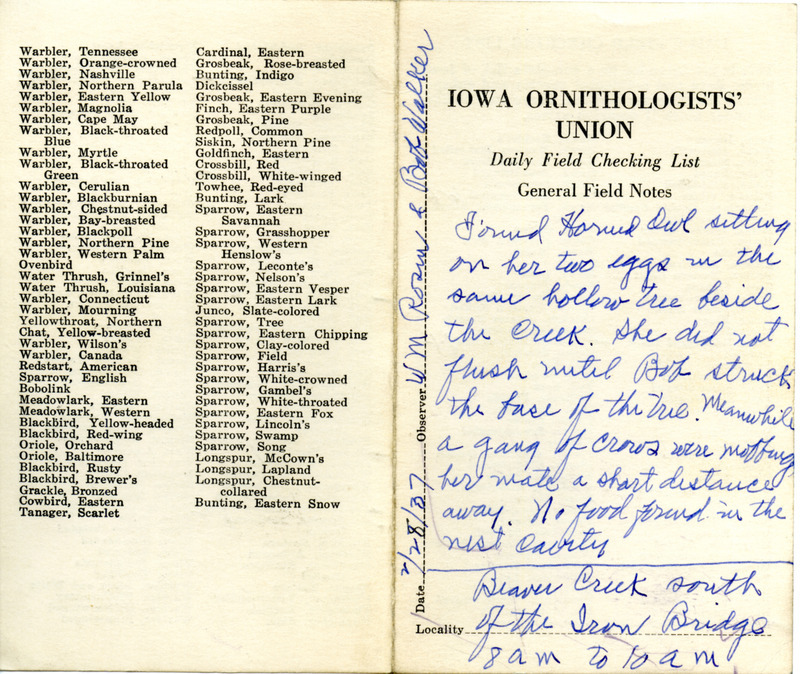 Warbler, Tennessee
Warbler, Orange-crowned
Warbler, Nashville
Warbler, Northern Parula
Warbler, Eastern Yellow
Warbler, Magnolia
Warbler, Cape May
Warbler, Black-throated
Blue
Warbler, Myrtle
Warbler, Black-throated
Green
Warbler, Cerulian
Warbler, Blackburnian
Warbler, Chestnut-sided
Warbler, Bay-breasted
Warbler, Blackpoll
Warbler, Northern Pine
Warbler, Western Palm
Ovenbird
Water Thrush, Grinnel's
Water Thrush, Louisiana
Warbler, Connecticut
Warbler, Mourning
Yellowthroat, Northern
Chat, Yellow-breasted
Warbler, Wilson's
Warbler, Canada
Redstart, American
Sparrow, English
Bobolink
Meadowlark, Eastern
Meadowlark, Western
Blackbird, Yellow-headed
Blackbird, Red-wing
Oriole, Orchard
Oriole, Baltimore
Blackbird, Rusty
Blackbird, Brewer's
Grackle, Bronzed
Cowbird, Eastern
Tanager, Scarlet
Cardinal, Eastern
Grosbeak, Rose-breasted
Bunting, Indigo
Dickcissel
Grosbeak, Eastern Evening
Finch, Eastern Purple
Grosbeak, Pine
Redpoll, Common
Siskin, Northern Pine
Goldfinch, Eastern
Crossbill, Red
Crossbill, White-winged
Towhee, Red-eyed
Bunting, Lark
Sparrow, Eastern
Savannah
Sparrow, Grasshopper
Sparrow, Western
Henslow's
Sparrow, Leconte's
Sparrow, Nelson's
Sparrow, Eastern Vesper
Sparrow, Eastern Lark
Junco, Slate-colored
Sparrow, Tree
Sparrow, Eastern Chipping
Sparrow, Clay-colored
Sparrow, Field
Sparrow, Harris's
Sparrow, White-crowned
Sparrow, Gambel's
Sparrow, White-throated
Sparrow, Eastern Fox
Sparrow, Lincoln's
Sparrow, Swamp
Sparrow, Song
Longspur, McCown's
Longspur, Lapland
Longspur, Chestnut-
collared
Bunting, Eastern Snow
Date 2/28/37 Observer WM Rosene & Bob Walker
IOWA ORNITHOLOGISTS'
UNION
Daily Field Checking List
General Field Notes
Found Horned Owl sitting
on her two eggs in the
same hollow tree beside
the creek. She did not
flush until Bob struck
the base of the tree. Meanwhile
a gang of crows were mobbing
her mate a short distance
away. No food found in the
nest cavity
Beaver Creek south
Locality of the Iron Bridge
8 am to 10 am